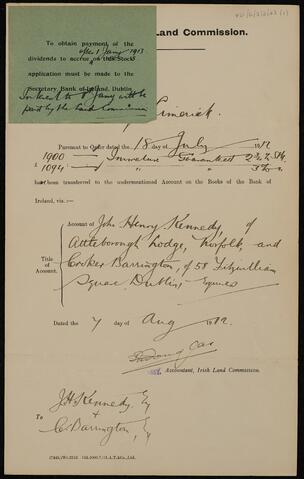 To obtain payment of the
after 1 Jany 1913
dividends to accrue on this Stock
application must be made to the
Secretary Bank of Ireland, Dublin.
Interest to 1 Jany will be
paid by the Land Commission
Land Commission.
Limerick
Pursuant to Order dated the 18 day of July 1912
£ 1900 Guaranteed 2¾ % Stk.
1094 " "
have been transferred to the undermentioned Account on the Books of the Bank of
Ireland, viz.:—
Title of Account.
Account of John Henry Kennedy, of
Attleborough Lodge, Norfolk, and
Croker Barrington, of 58 Fitzwilliam
Square Dublin, Esquires
Dated the 7 day of Aug 1912.
Accountant, Irish Land Commission.
J.H. Kennedy, Esq
+
To C. Barrington, Esq